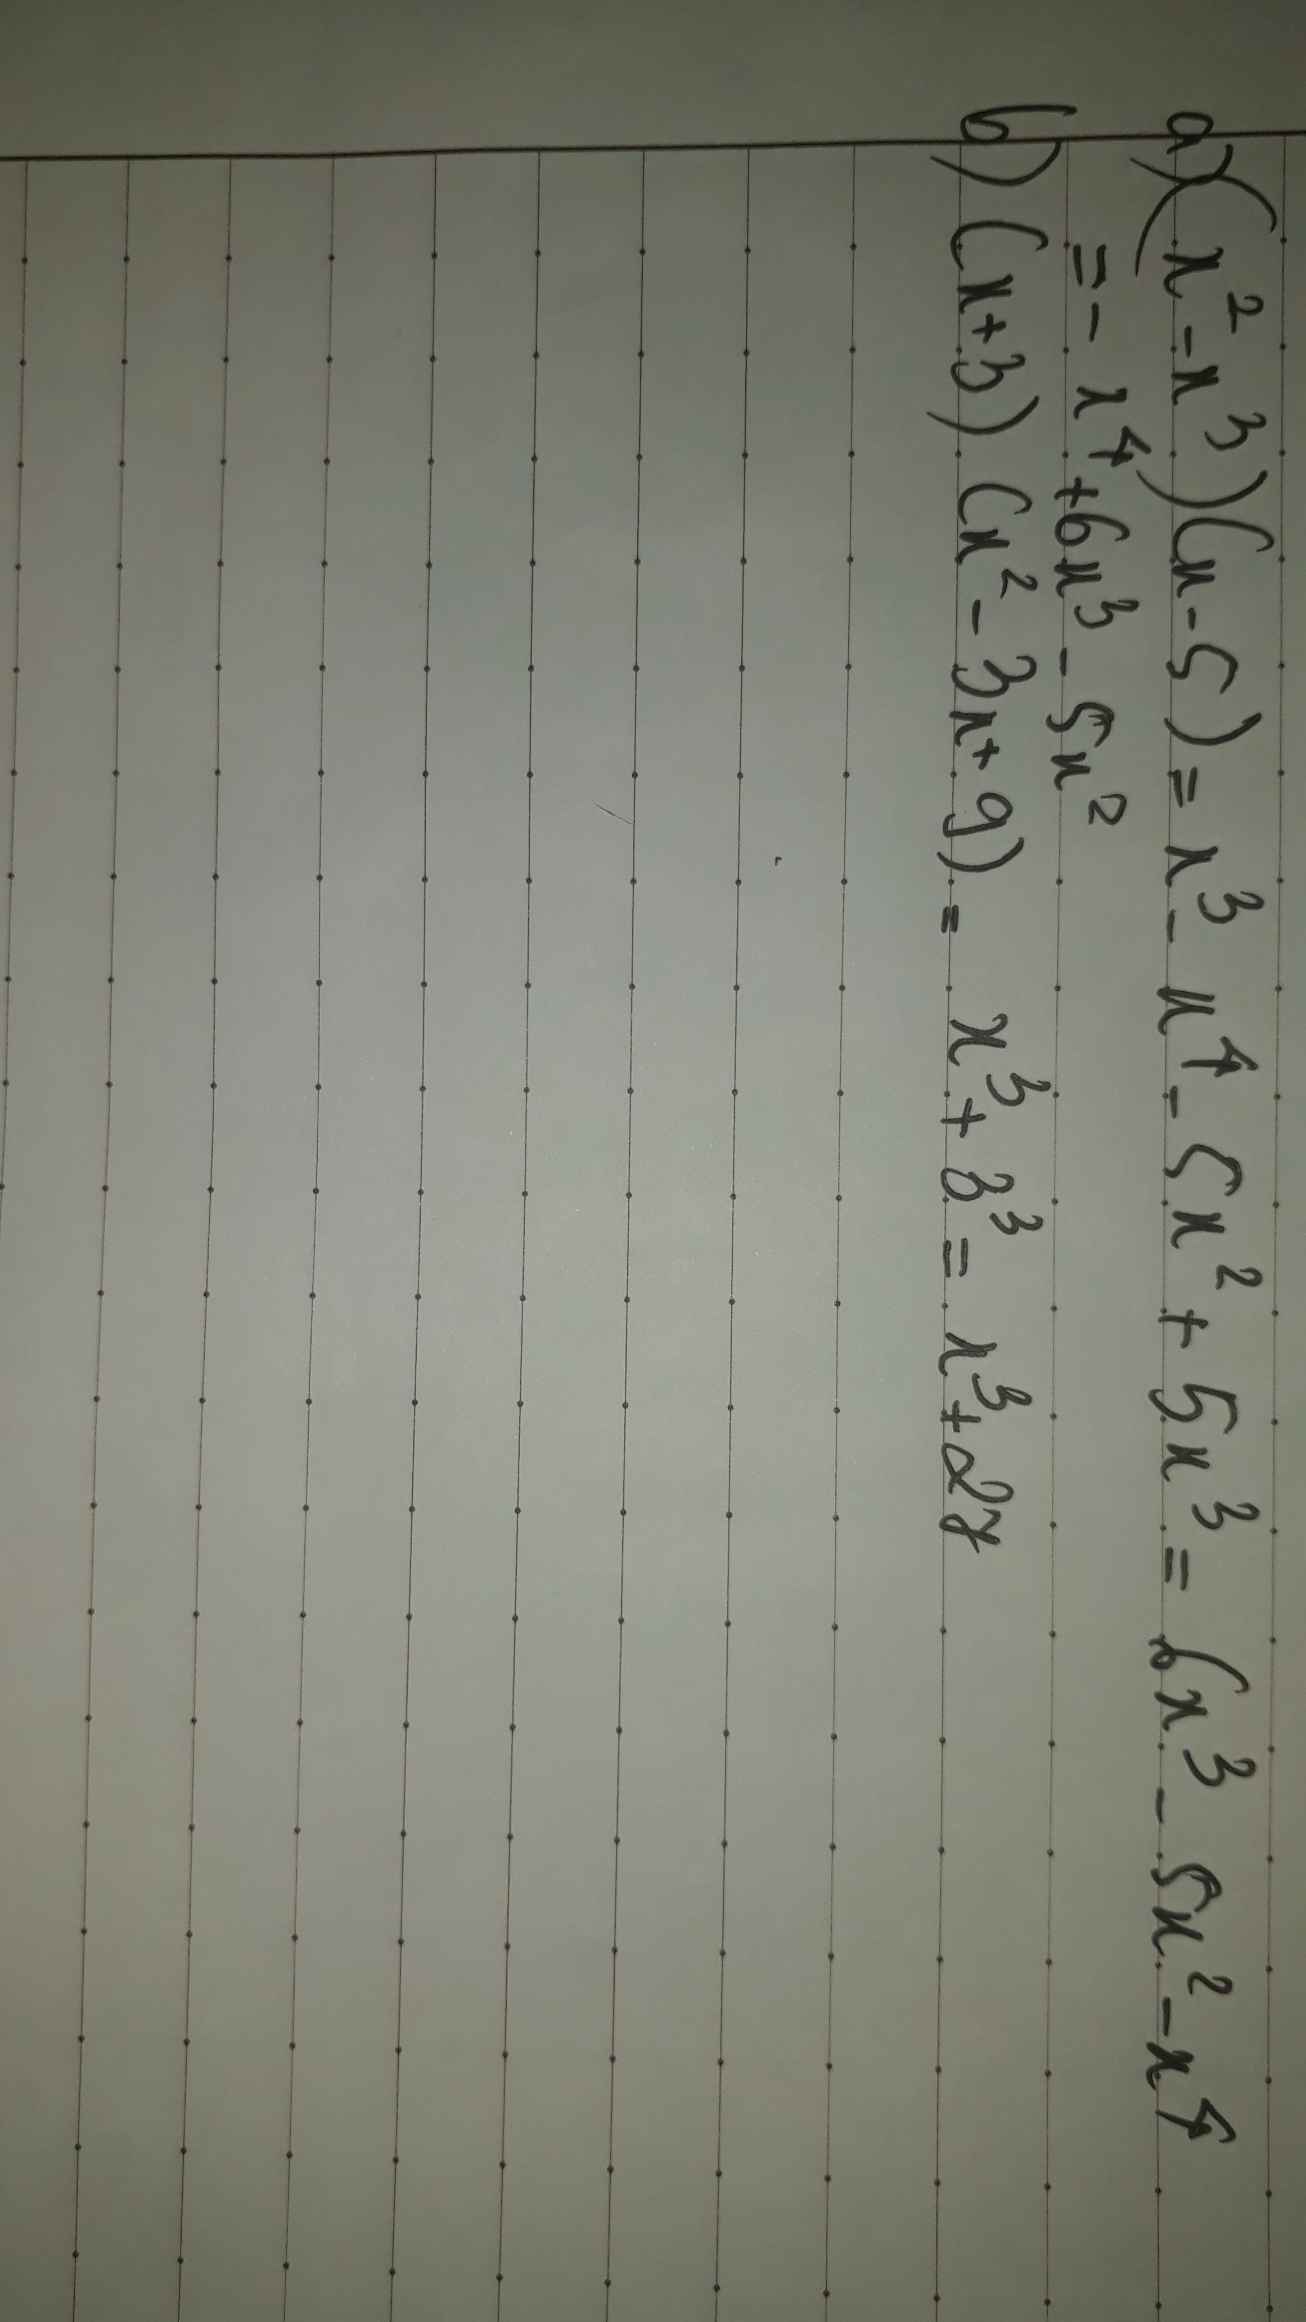 a) (x² - x³)(x - 5) = x³ - x⁴ - 5x² + 5x³ = 6x³ - 5x² - x⁴
= - x⁴ + 6x³ - 5x²
b) (x + 3) (x² - 3x + 9) = x³ + 3³ = x³ + 27